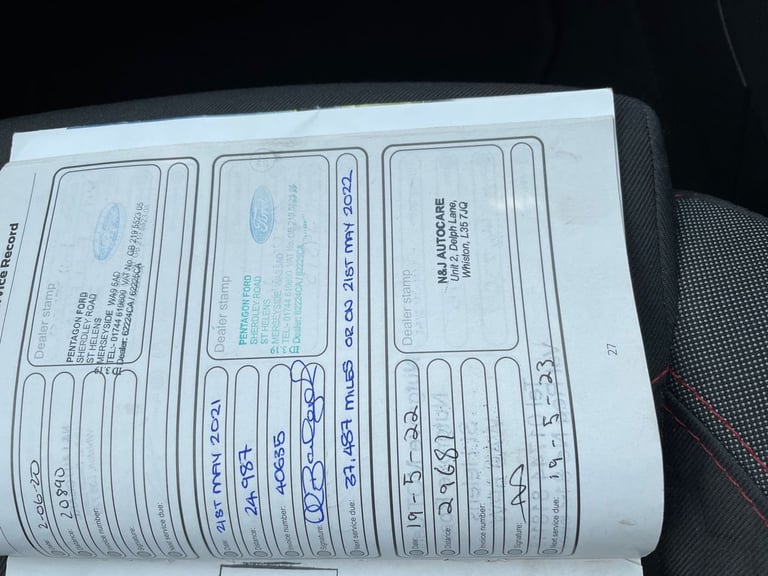 Service Record
Dealer stamp
PENTAGON FORD
SHERDLEY ROAD
ST HELENS
MERSEYSIDE WA9 5AD
TEL- 01744 519600 VAT No. GB 219 5523 05
Dealer: 62224CA / 62225CA
Date: 2-06-20
Distance: 20890
Invoice number:
Signature:
Next service due:
Dealer stamp
Ford
PENTAGON FORD
SHERDLEY ROAD
ST HELENS
MERSEYSIDE
TEL- 01744 519600
Dealer: 62224CA / 62225CA
Date: 21ST MAY 2021
Distance: 24,987
Invoice number: 40635
Signature:
Next service due: 37,487 MILES OR ON 21ST MAY 2022
Dealer stamp
N&J AUTOCARE
Unit 2, Delph Lane,
Whiston, L35 7JQ
Date: 19-5-22
Distance: 29687
Invoice number:
Signature:
Next service due: 19-5-23
27